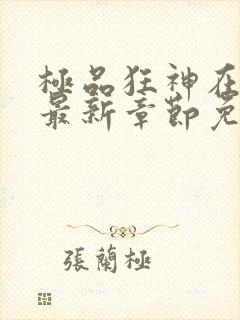 極品狂神在
最新章節免
張蘭極